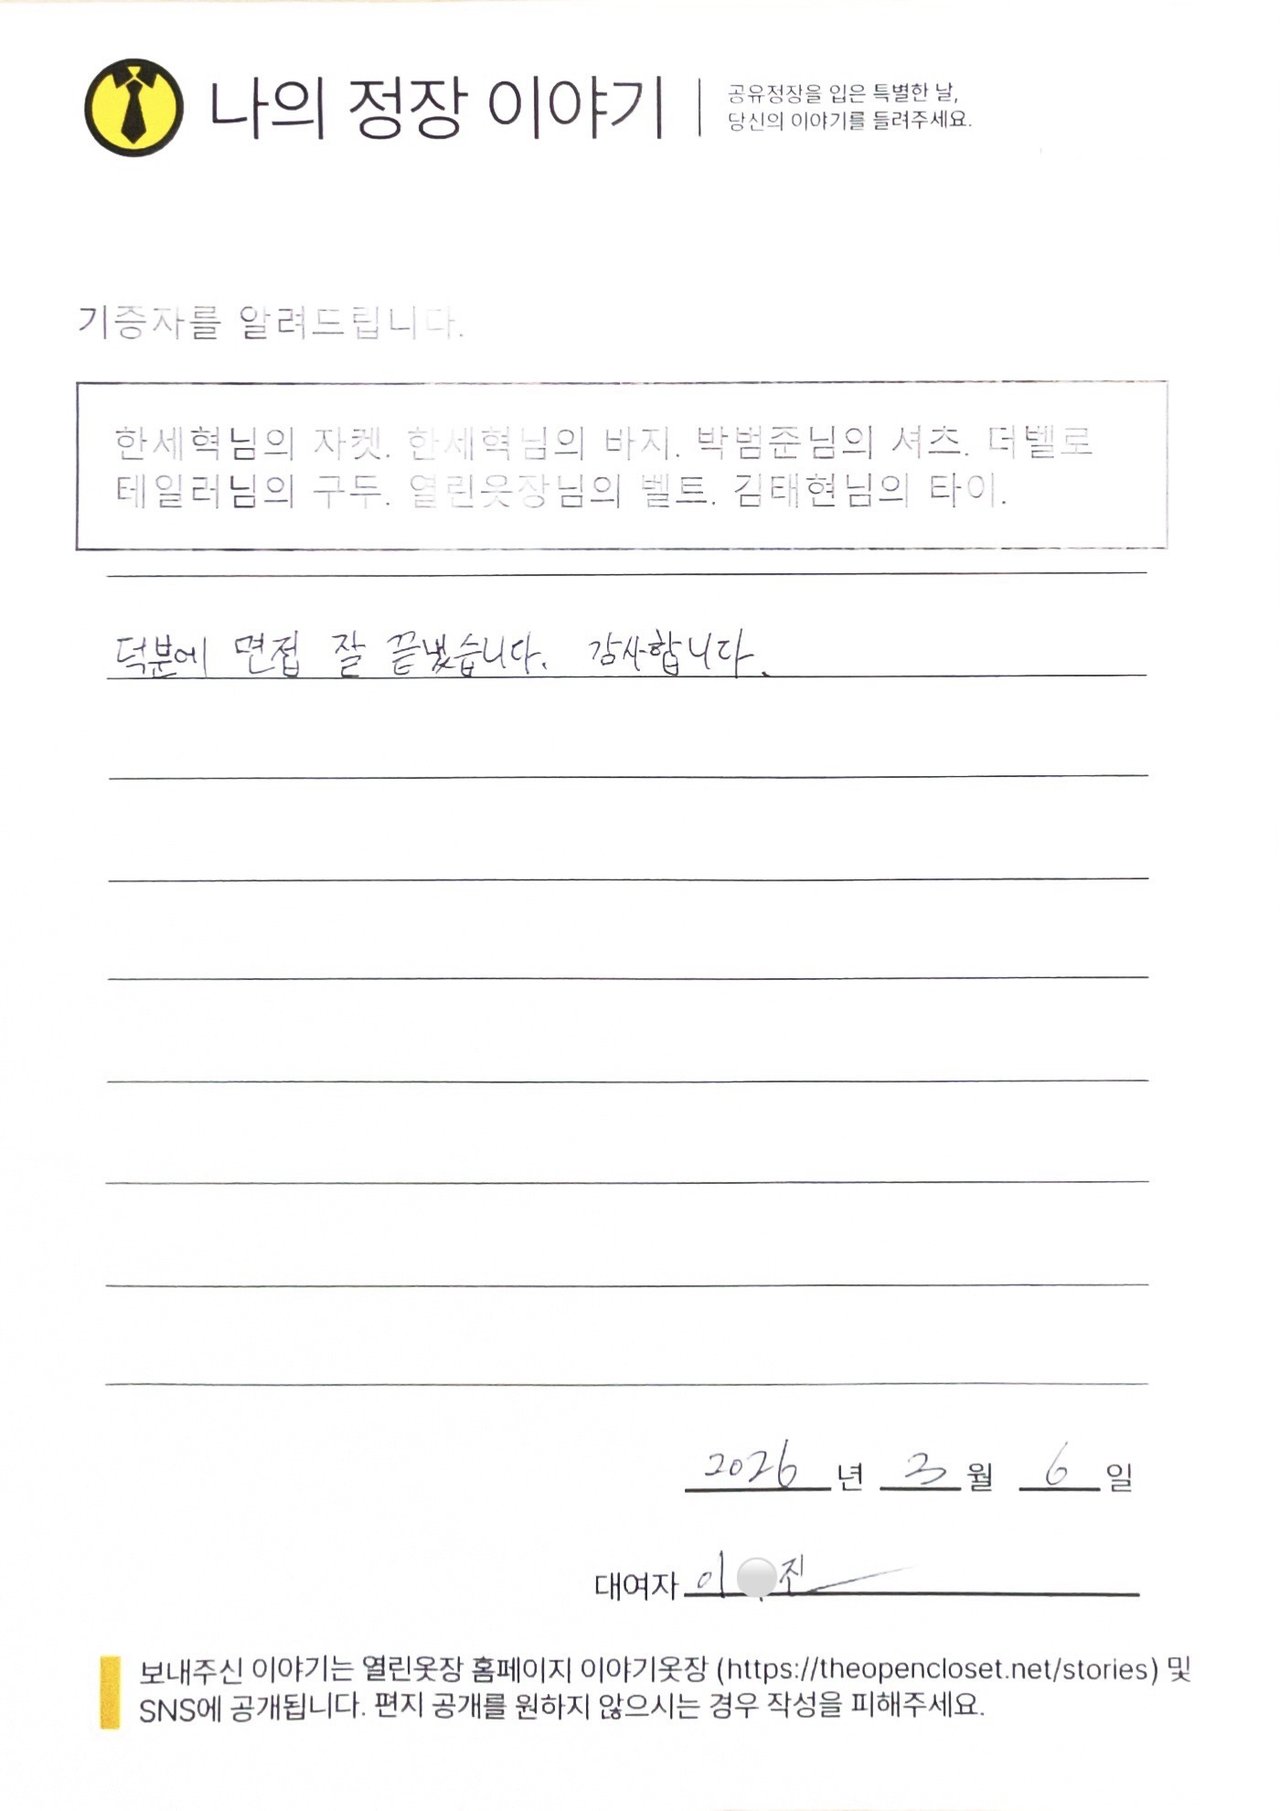 나의 정장 이야기
공유정장을 입은 특별한 날,
당신의 이야기를 들려주세요.
기증자를 알려드립니다.
한세혁님의 자켓. 한세혁님의 바지. 박범준님의 셔츠. 더벨로
테일러님의 구두. 열린옷장님의 벨트. 김태현님의 타이.
덕분에 면접 잘 끝냈습니다. 감사합니다.
2026년 3월 6일
대여자 이 진
보내주신 이야기는 열린옷장 홈페이지 이야기옷장 (https://theopencloset.net/stories) 및
SNS에 공개됩니다. 편지 공개를 원하지 않으시는 경우 작성을 피해주세요.